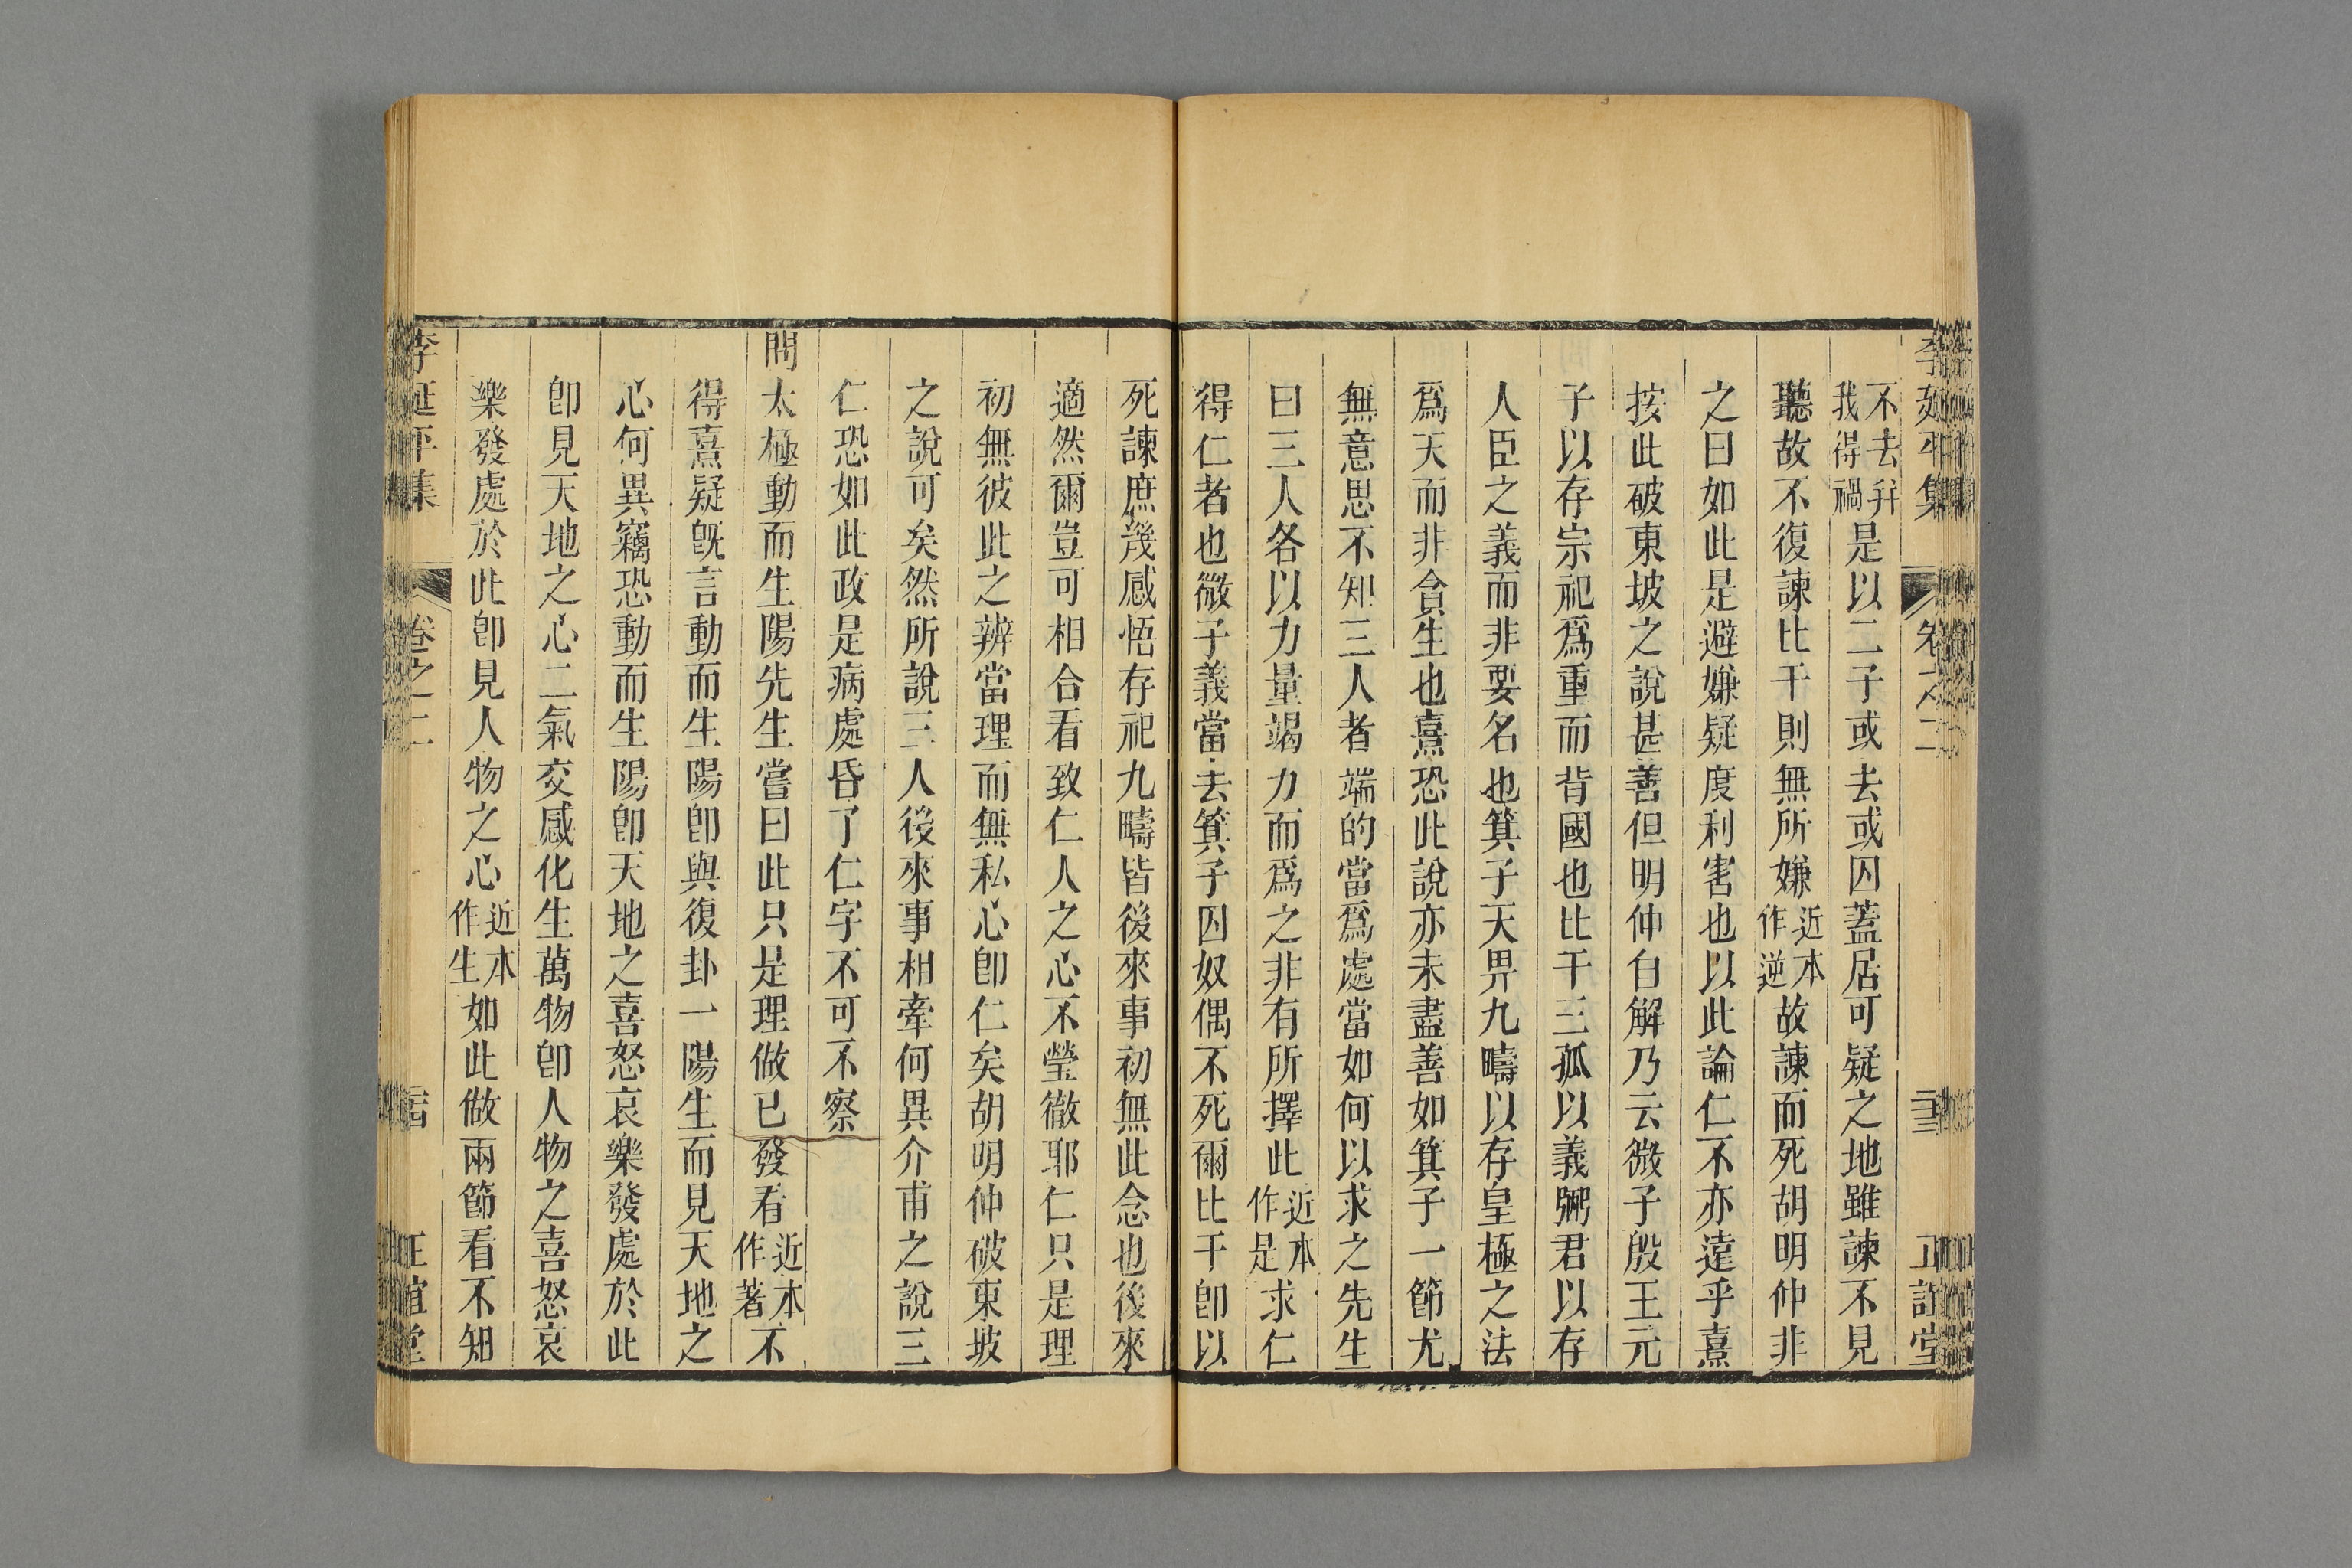 不去并我得禍是以二子或去或囚蓋居可疑之地雖諫不見
聽故不復諫比干則無所嫌近本作逆故諫而死胡明仲非
之曰如此是避嫌疑度利害也以此論仁不亦遠乎熹
按此破東坡之說甚善但明仲自解乃云微子殷王元
子以存宗祀爲重而背國也比干三孤以義弼君以存
人臣之義而非要名也箕子天畀九疇以存皇極之法
爲天而非貪生也熹恐此說亦未盡善如箕子一節尤
無意思不知三人者端的當爲處當如何以求之先生
曰三人各以力量竭力而爲之非有所擇此近本作是求仁
得仁者也微子義當去箕子囚奴偶不死爾比干卽以
死諫庶幾感悟存祀九疇皆後來事初無此念也後來
適然爾豈可相合看致仁人之心不瑩徹耶仁只是理
初無彼此之辨當理而無私心卽仁矣胡明仲破東坡
之說可矣然所說三人後來事相牽何異介甫之說三
仁恐如此政是病處昏了仁字不可不察
問太極動而生陽先生嘗曰此只是理做已發看近本作著不
得熹疑旣言動而生陽卽與復卦一陽生而見天地之
心何異竊恐動而生陽卽天地之喜怒哀樂發處於此
卽見天地之心二氣交感化生萬物卽人物之喜怒哀
樂發處於此卽見人物之心近本作生如此做兩節看不知
李延平集 卷之二 正誼堂